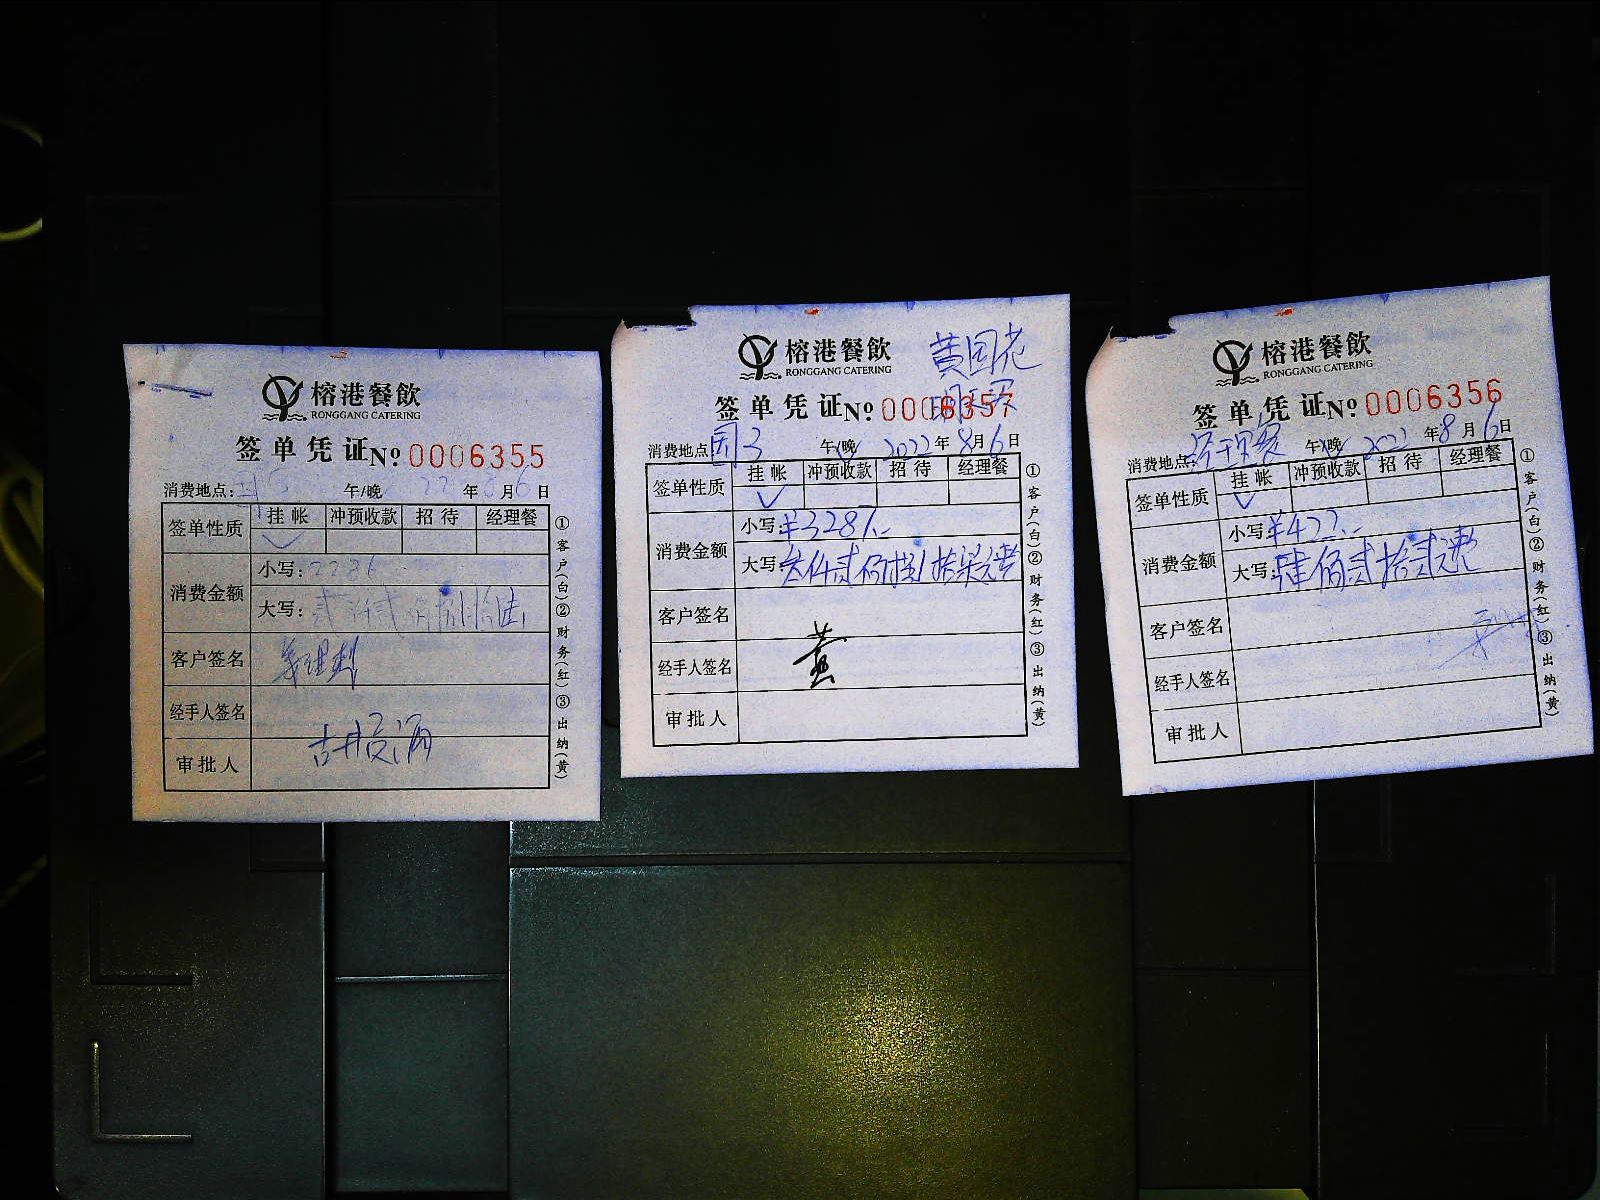 榕港餐飲
RONGGANG CATERING
签单凭证 № 0006355
消费地点: 午/晚 22 年 8 月 6 日
签单性质 挂帐 冲预收款 招待 经理餐
✓
消费金额 小写: 2286
大写: 贰仟贰佰捌拾陆
客户签名
经手人签名
审批人
①客户(白)②财务(红)③出纳(黄)
榕港餐飲
RONGGANG CATERING
黄国花
签单凭证 № 0006357
消费地点 园3 午/晚 2022 年 8 月 6 日
签单性质 挂帐 冲预收款 招待 经理餐
✓
消费金额 小写: ¥3287.-
大写: 叁仟贰佰捌拾柒元整
客户签名
经手人签名 黄
审批人
①客户(白)②财务(红)③出纳(黄)
榕港餐飲
RONGGANG CATERING
签单凭证 № 0006356
消费地点: 经理餐 午/晚 2022 年 8 月 6 日
签单性质 挂帐 冲预收款 招待 经理餐
✓
消费金额 小写: ¥422.-
大写: 佰贰拾贰元整
客户签名
经手人签名
审批人
①客户(白)②财务(红)③出纳(黄)